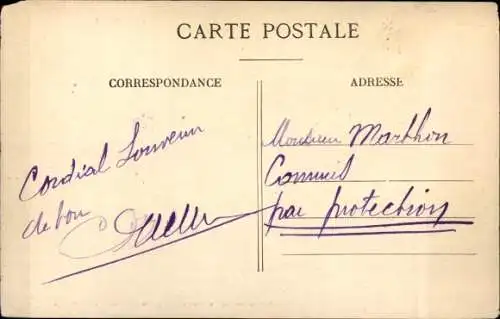 CARTE POSTALE
CORRESPONDANCE
ADRESSE
Cordial Souvenir
de ton
Monsieur Marthon
Commis
par protection